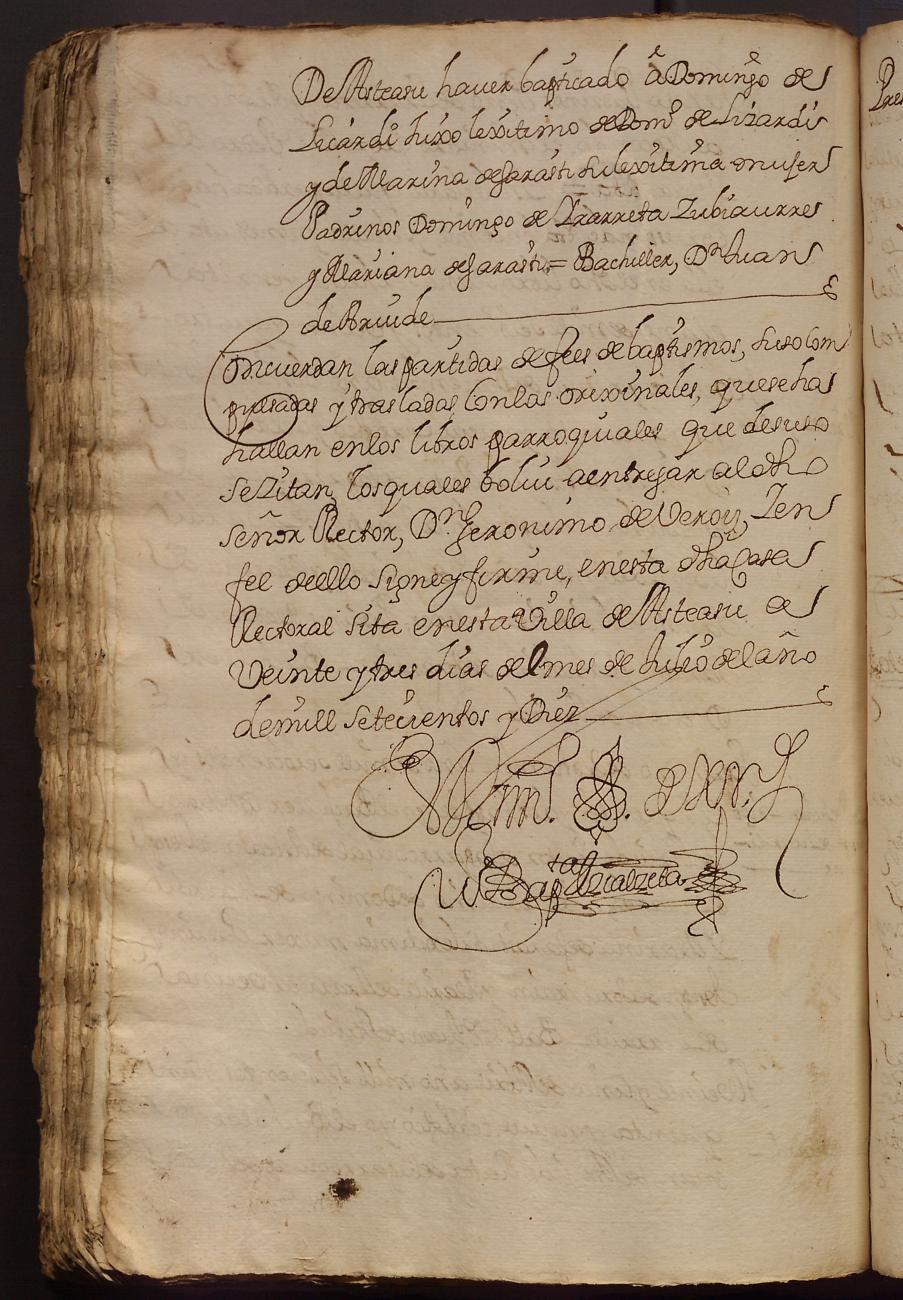 De Asteasu haver bapticado â Domingo de
Licardi hixo lexitimo de Domo de Lizardi
y de Marina de Sarasti su lexitima muger
Padrinos Domingo de Yrarreta Zubiaurre
y Mariana de Sarasti = Bachiller, Dn Juan
de Arriude
Concuerdan las partidas de fees de baptismos, suso com
pulsadas y trasladas, Con los orixinales, que se ha
hallan en los libros parroquiales que de suso
se Zitan, los quales bolui a entregar al dho
señor Rector, Dn Geronimo de Veroiz, Zen
fee de ello signe y firme, en esta dha Casa
Rectoral sita en esta Villa de Asteasu a
Veinte y tres dias del mes de Julio del año
de mill setecientos y Diez